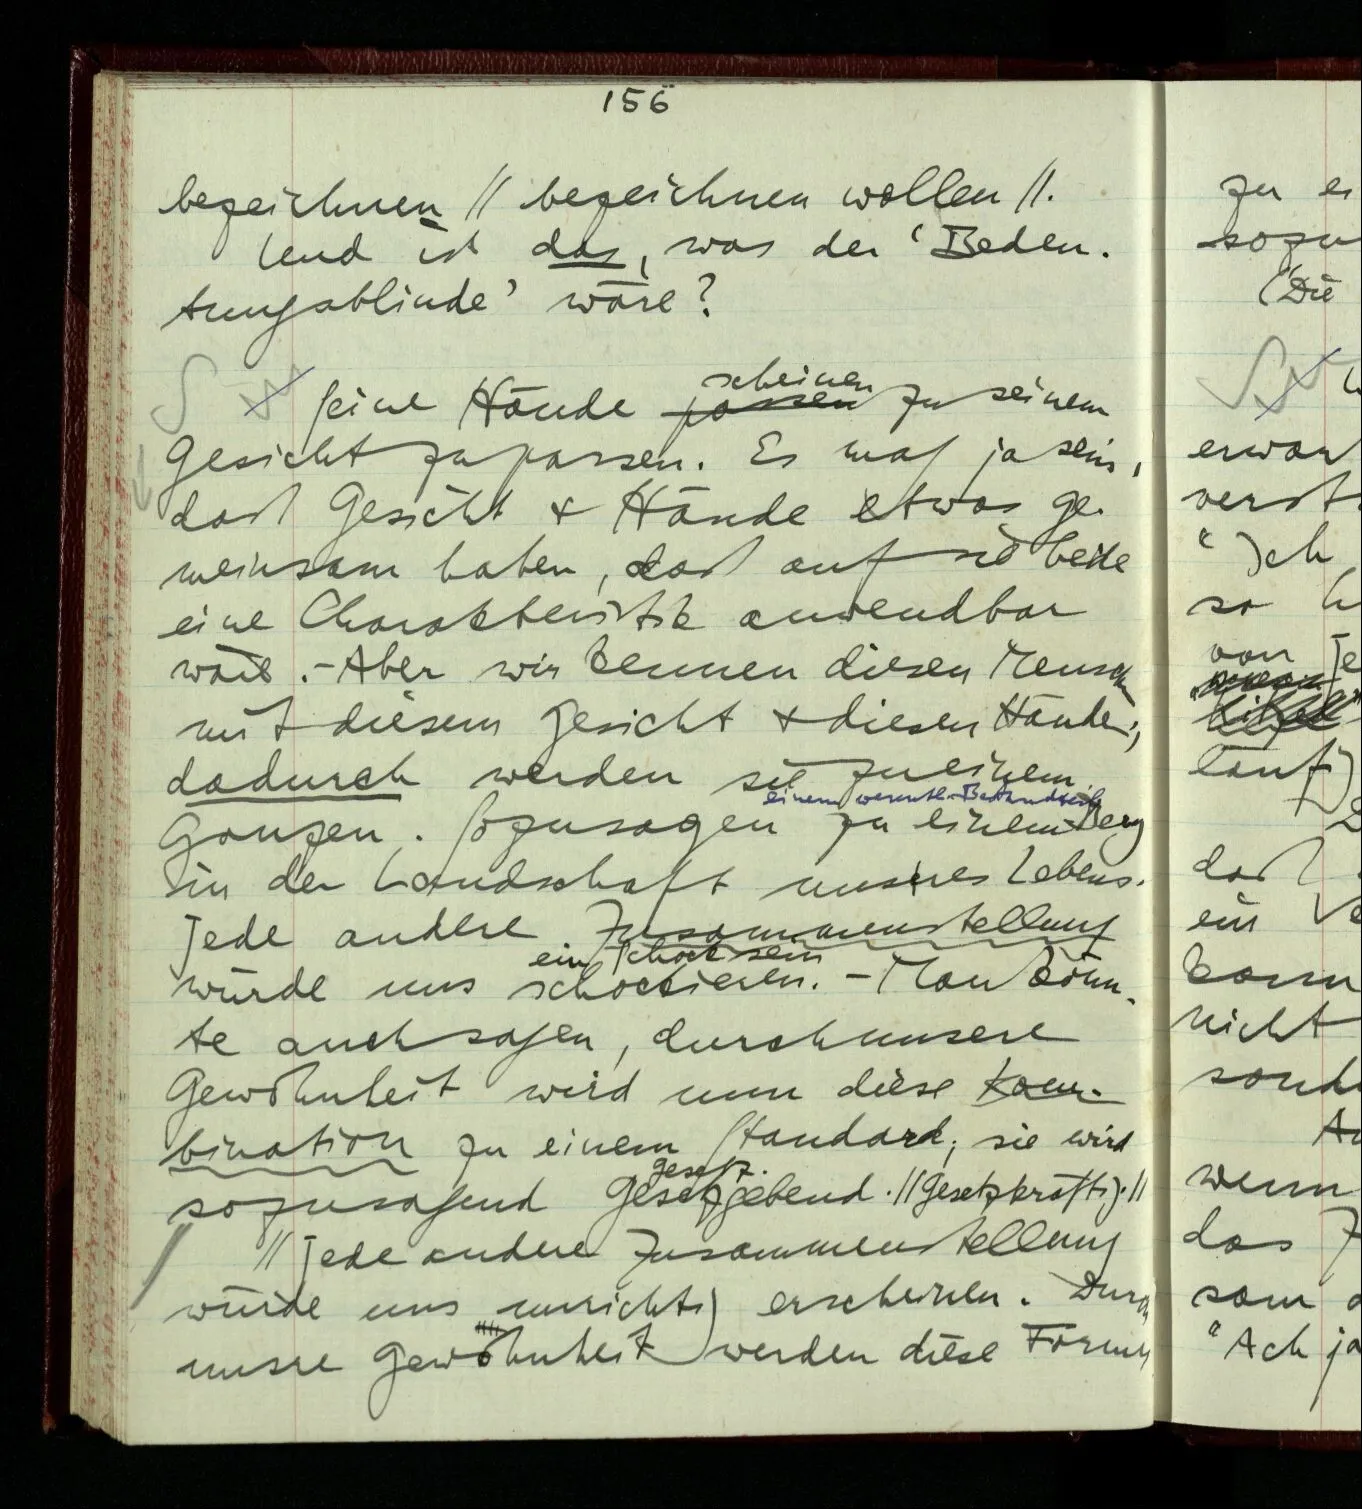 156
bezeichnen // bezeichnen wollen //.
Und ist das, was der 'Bedeu-
tungsblinde' wäre?
S Seine Hände scheinen passen zu seinem
Gesicht zu passen. Es mag ja sein,
daß Gesicht & Hände etwas ge-
meinsam haben, daß auf sie beide
eine Charakteristik anwendbar
wäre. – Aber wir kennen diesen Mensch
mit diesem Gesicht & diesen Händen;
dadurch werden sie zu einem
einem wesentl. Bestandteil
Ganzen. Sozusagen zu einem Berg
in der Landschaft unseres Lebens.
Jede andere Zusammenstellung
ein Schock sein
würde uns schockieren. – Man könn-
te auch sagen, durch unsere
Gewohnheit wird nun diese Kom-
bination zu einem Standard; sie wird
gesetz-
sozusagend Gesetzgebend. // Gesetzkräftig. //
// Jede andere Zusammenstellung
würde uns unrichtig erscheinen. Durch
unsre Gewohnheit werden diese Formen
zu ei
sozu
(Die
S
erwar
verst
"Ich
so h
von Je
läuft)
daß
ein Ve
kann
nicht
sonde
wenn
das Z
sam
"Ach ja